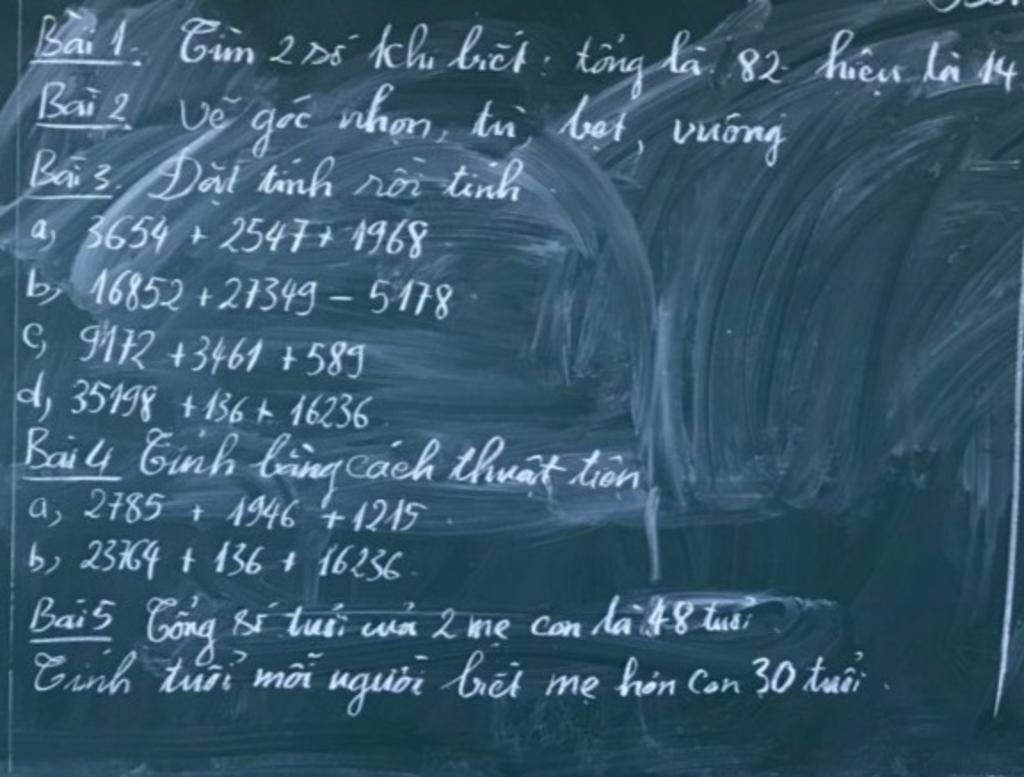 Bài 1. Tìm 2 số khi biết: tổng là 82 hiệu là 14
Bài 2 Vẽ góc nhọn, tù, bẹt, vuông
Bài 3. Đặt tính rồi tính
a, 3654 + 2547 + 1968
b, 16852 + 27349 - 5178
c, 9172 + 3461 + 589
d, 35198 + 136 + 16236
Bài 4 Tính bằng cách thuật tiện
a, 2785 + 1946 + 1215
b, 23764 + 136 + 16236
Bài 5 Tổng số tuổi của 2 mẹ con là 48 tuổi
Tính tuổi mỗi người biết mẹ hơn con 30 tuổi.